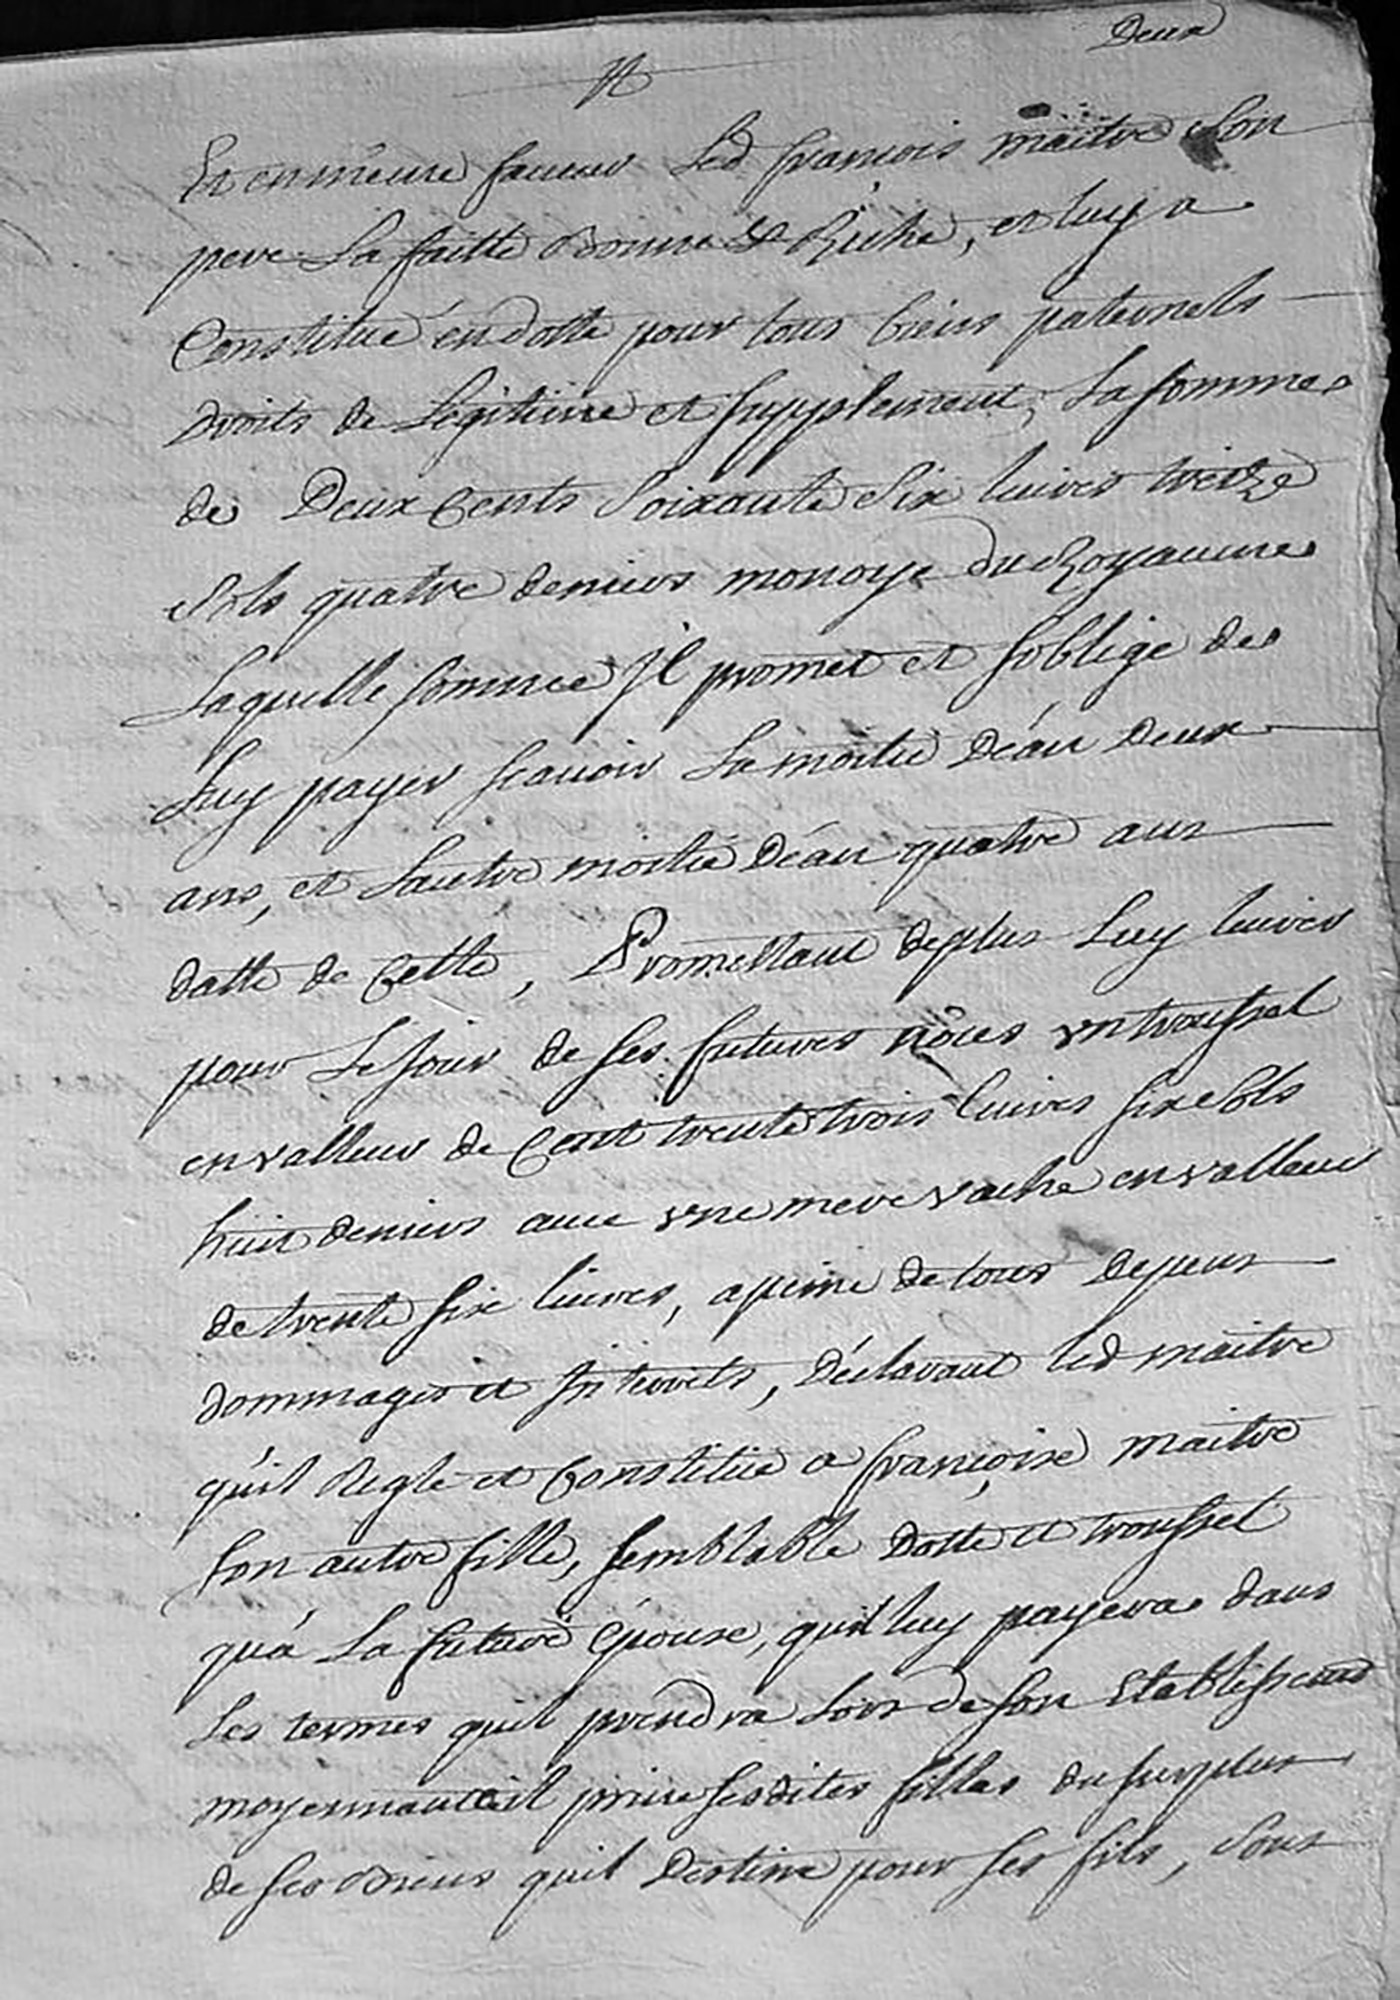 Deux
Et en meme faveur led françois maitre son
pere La faitte Bonne & Riche, et luy a
Constitué en dotte pour tous biens paternels
droits de Legitime et supplement, La somme
de Deux Cents Soixante Six livres treize
Sols quatre deniers monoye du Royaume
Laquelle somme Jl promet et soblige de
Luy payer scauoir La moitié Déan deux
ans, et Lautre moitié Déan quatre ans
datte de Cette, Promettant deplus Luy livrer
pour Le Jour de ses futures nôces vn troussel
en valleur de Cent trente trois livres six Sols
huit deniers auec vne mere vache en valleur
de trente six livres, a peine de tous depens
dommages et Jnterrets, Déclarant led maitre
qu'il Regle et Constitue a françoise maitre
son autre fille, semblable Dotte et troussel
qu'á La future Epouse, quil luy payera dans
Les termes quil prendra Lors de son Etablissement
moyennant quil prive sesdites filles du surplus
de ses Biens quil Destine pour ses fils, Sous